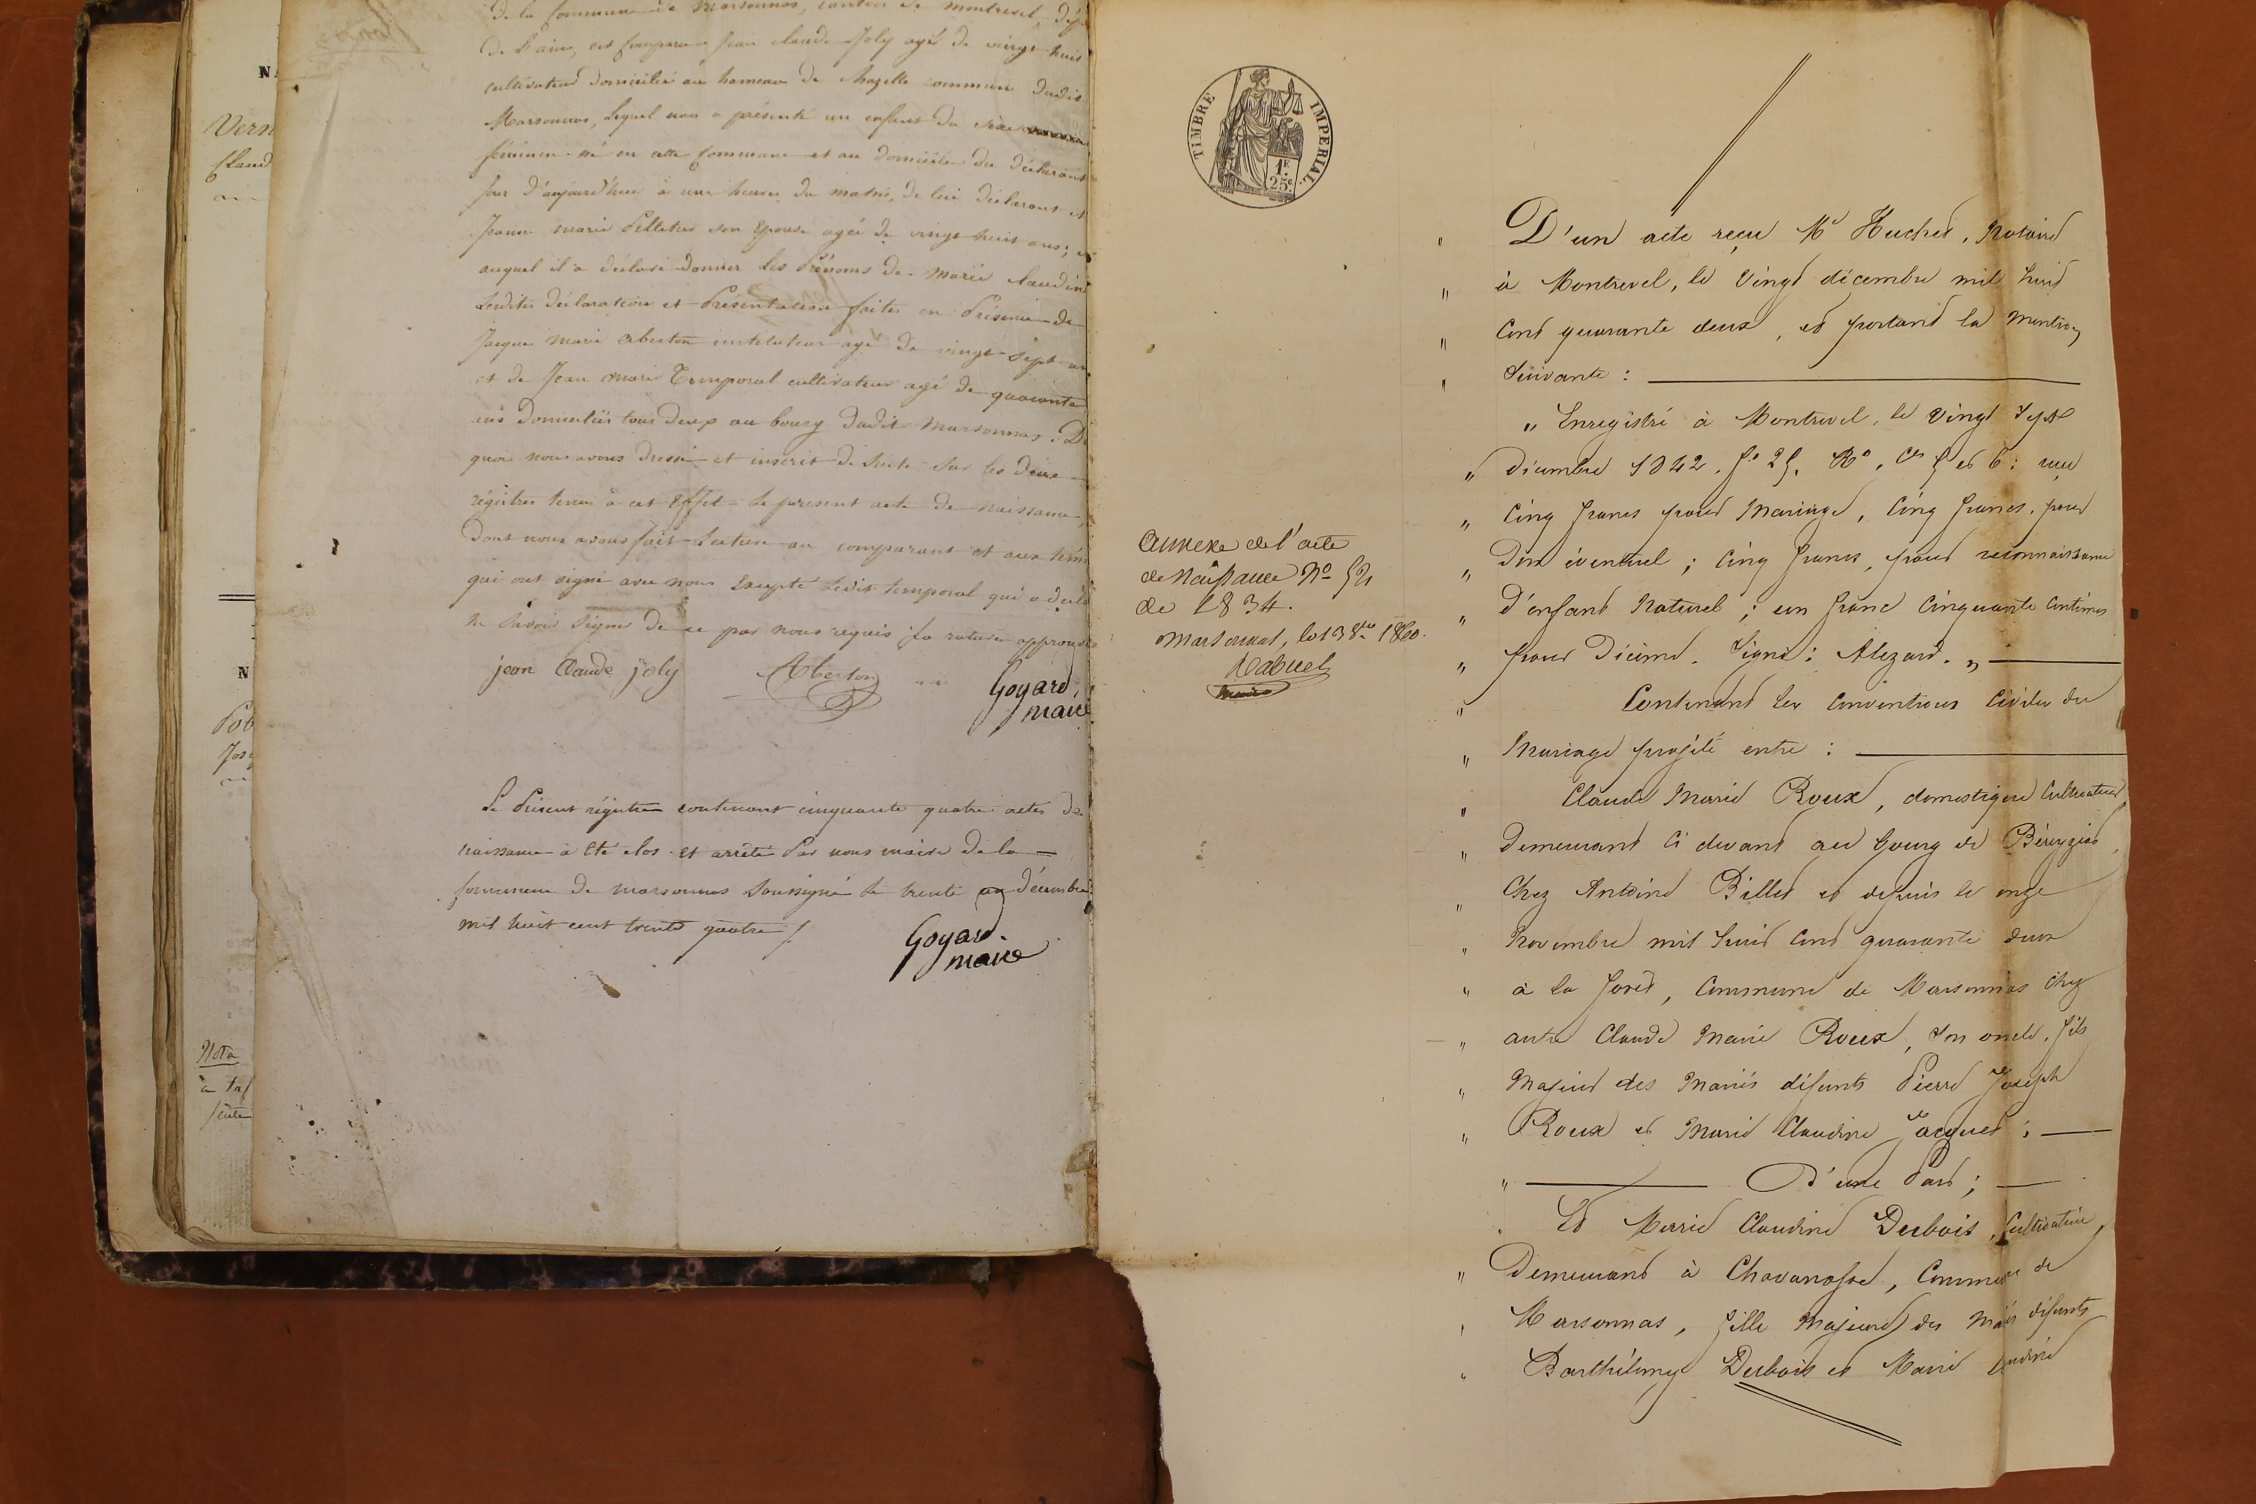 N
Vern
Claud
N
Pob
Jos
Nota
à tra
de la Commune de Marsonnas, canton de montrevel, dépt
de L'ain, est Comparu Jean claude Joly agé de vingt huit
cultivateur domicilié au hameau de Chazelle commune dudit
Marsonnas, Lequel nous a présenté un enfant du sexe
féminin né en cette Commune et au domicile du déclarant
jour d'aujourd'hui à une heure du matin, de lui déclarant et
Jeanne marie Pelletier son Epouse agée de vingt huit ans; et
auquel il a déclaré donner les Prénoms de marie claudine
Lesdites déclaration et Présentation faites en Présence de
Jacques Marie Aberton instituteur agé de vingt Sept ans
et de Jean marie Temporal cultivateur agé de quarante
ans Domiciliés tous deux au bourg dudit Marsonnas. De
quoi nous avons dressé et inscrit de Suite Sur les deux
régistres tenus à cet Effet le présent acte de naissance,
Dont nous avons fait Lecture au comparant et aux témoins
qui ont signé avec nous Excepté Ledit temporal qui a déclaré
ne Savoir Signer de ce par nous requis la rature approuvée
jean Claude joly Aberton Goyard,
maire
Le Présent régistre contenant cinquante quatre actes de
naissance a été clos et arrêté Par nous maire de la
Commune de marsonnas Soussigné Le trente un décembre
mil huit cent trente quatre /.
Goyard.
maire
TIMBRE IMPERIAL.
1F.
25c.
annexe de l'acte
de Naissance No 52
de 1834.
Marsonnas, le 13 8bre 1860.
Rabuel
maire
" D'un acte reçu Me Huchet, Notaire
" à Montrevel, le Vingt décembre mil huit
" Cent quarante deux, et portant la Mention
" Suivante :
" Enregistré à Montrevel, le vingt Sept
" Décembre 1842. fo 25. Ro, Ces 5 et 6 : reçu
" Cinq francs pour Mariage, Cinq francs, pour
" Don éventuel ; Cinq francs, pour reconnaissance
" D'enfant Naturel ; un franc Cinquante Centimes
" pour Décime. Signé : Alezard. "
" Contenant les Conventions Civiles du
" Mariage projeté entre :
" Claude Marie Roux, domestique Cultivateur
" Demeurant Ci devant au bourg de Béreyziat,
" Chez Antoine Billet et depuis le onze
" Novembre mil huit Cent quarante deux
" à la forêt, Commune de Marsonnas Chez
" autre Claude Marie Roux, son oncle, fils
" Majeur des Mariés défunts Pierre Joseph
" Roux et Marie Claudine Jacquet ;
" D'une Part ;
" Et Marie Claudine Desbois, Cultivatrice,
" Demeurant à Chavanosse, Commune de
" Marsonnas, fille Majeure des Mariés défunts
" Barthélemy Desbois et Marie Claudine